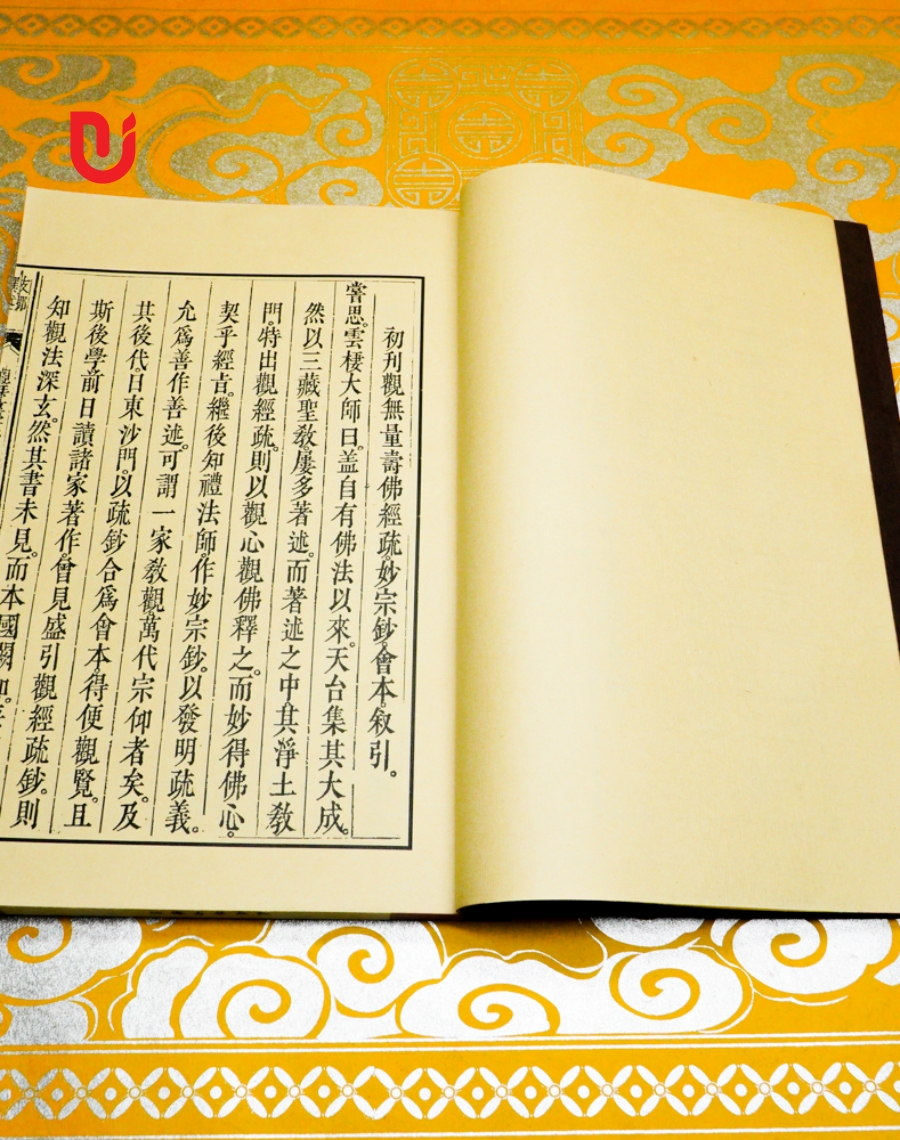 初刊觀無量壽佛經疏。妙宗鈔。會本。叙引。
嘗思。雲棲大師曰。盖自有佛法以來。天台集其大成。
然以三藏聖敎。屢多著述。而著述之中。其淨土敎
門。特出觀經疏。則以觀心觀佛釋之。而妙得佛心。
契乎經㫖。繼後知禮法師。作妙宗鈔。以發明疏義。
允爲善作善述。可謂一家敎觀。萬代宗仰者矣。及
其後代。日東沙門。以疏鈔合爲會本。得便觀覽。且
斯後學前日讀諸家著作。曾見盛引觀經疏鈔。則
知觀法深玄。然其書未見。而本國